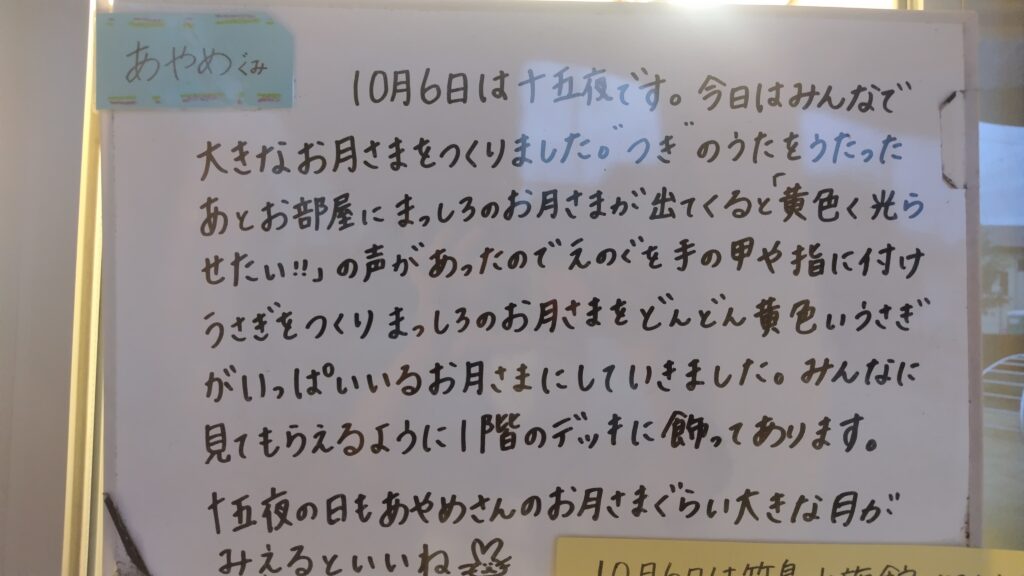 あやめぐみ
10月6日は十五夜です。今日はみんなで
大きなお月さまをつくりました。"つき"のうたをうたった
あとお部屋にまっしろのお月さまが出てくると「黄色く光ら
せたい!!」の声があったのでえのぐを手の甲や指に付け
うさぎをつくりまっしろのお月さまをどんどん黄色いうさぎ
がいっぱいいるお月さまにしていきました。みんなに
見てもらえるように1階のデッキに飾ってあります。
十五夜の日もあやめさんのお月さまぐらい大きな月が
みえるといいね
10月6日は